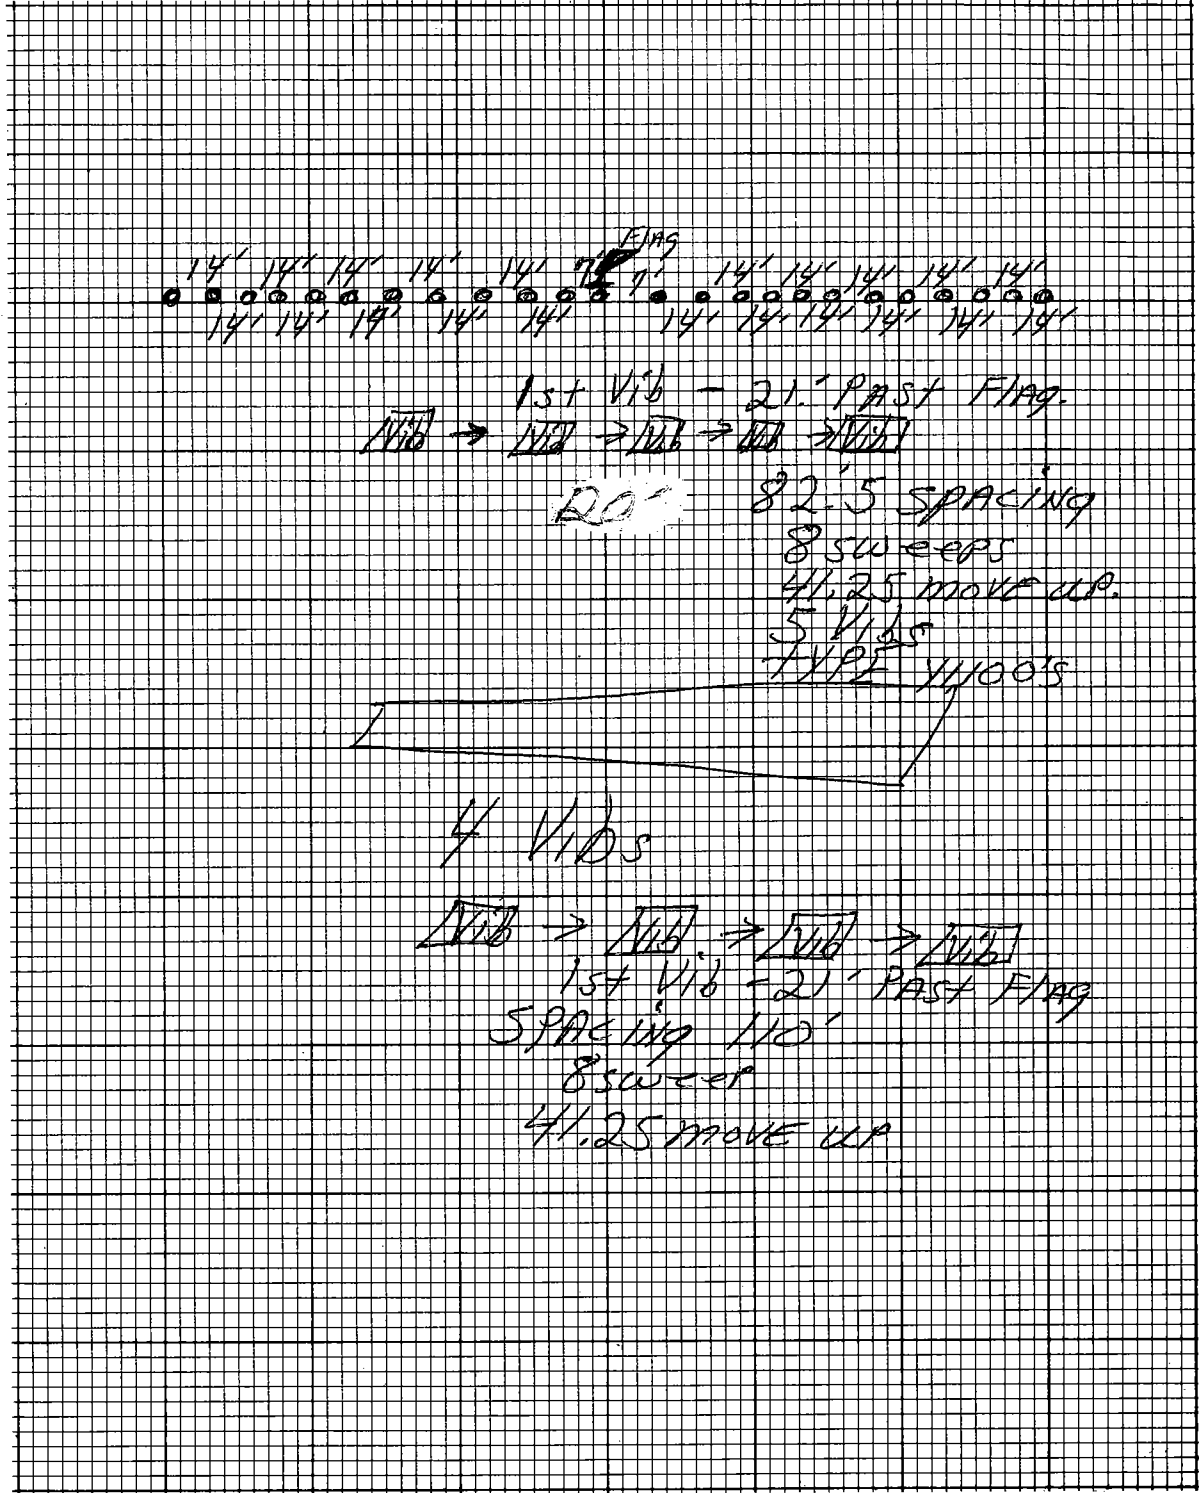 Flag
14' 14' 14' 14' 14' 7' 7' 14' 14' 14' 14' 14'
14' 14' 14' 14' 14' 14' 14' 14' 14' 14' 14'
1st Vib - 21' Past Flag.
Vib → Vib → Vib → Vib → Vib
20' 82.'5 spacing
8 sweeps
41.25 move up.
5 Vibs
TYPE Y1100's
4 Vibs
Vib → Vib → Vib → Vib
1st Vib - 21' Past Flag
Spacing 110'
8 sweep
41.25 move up